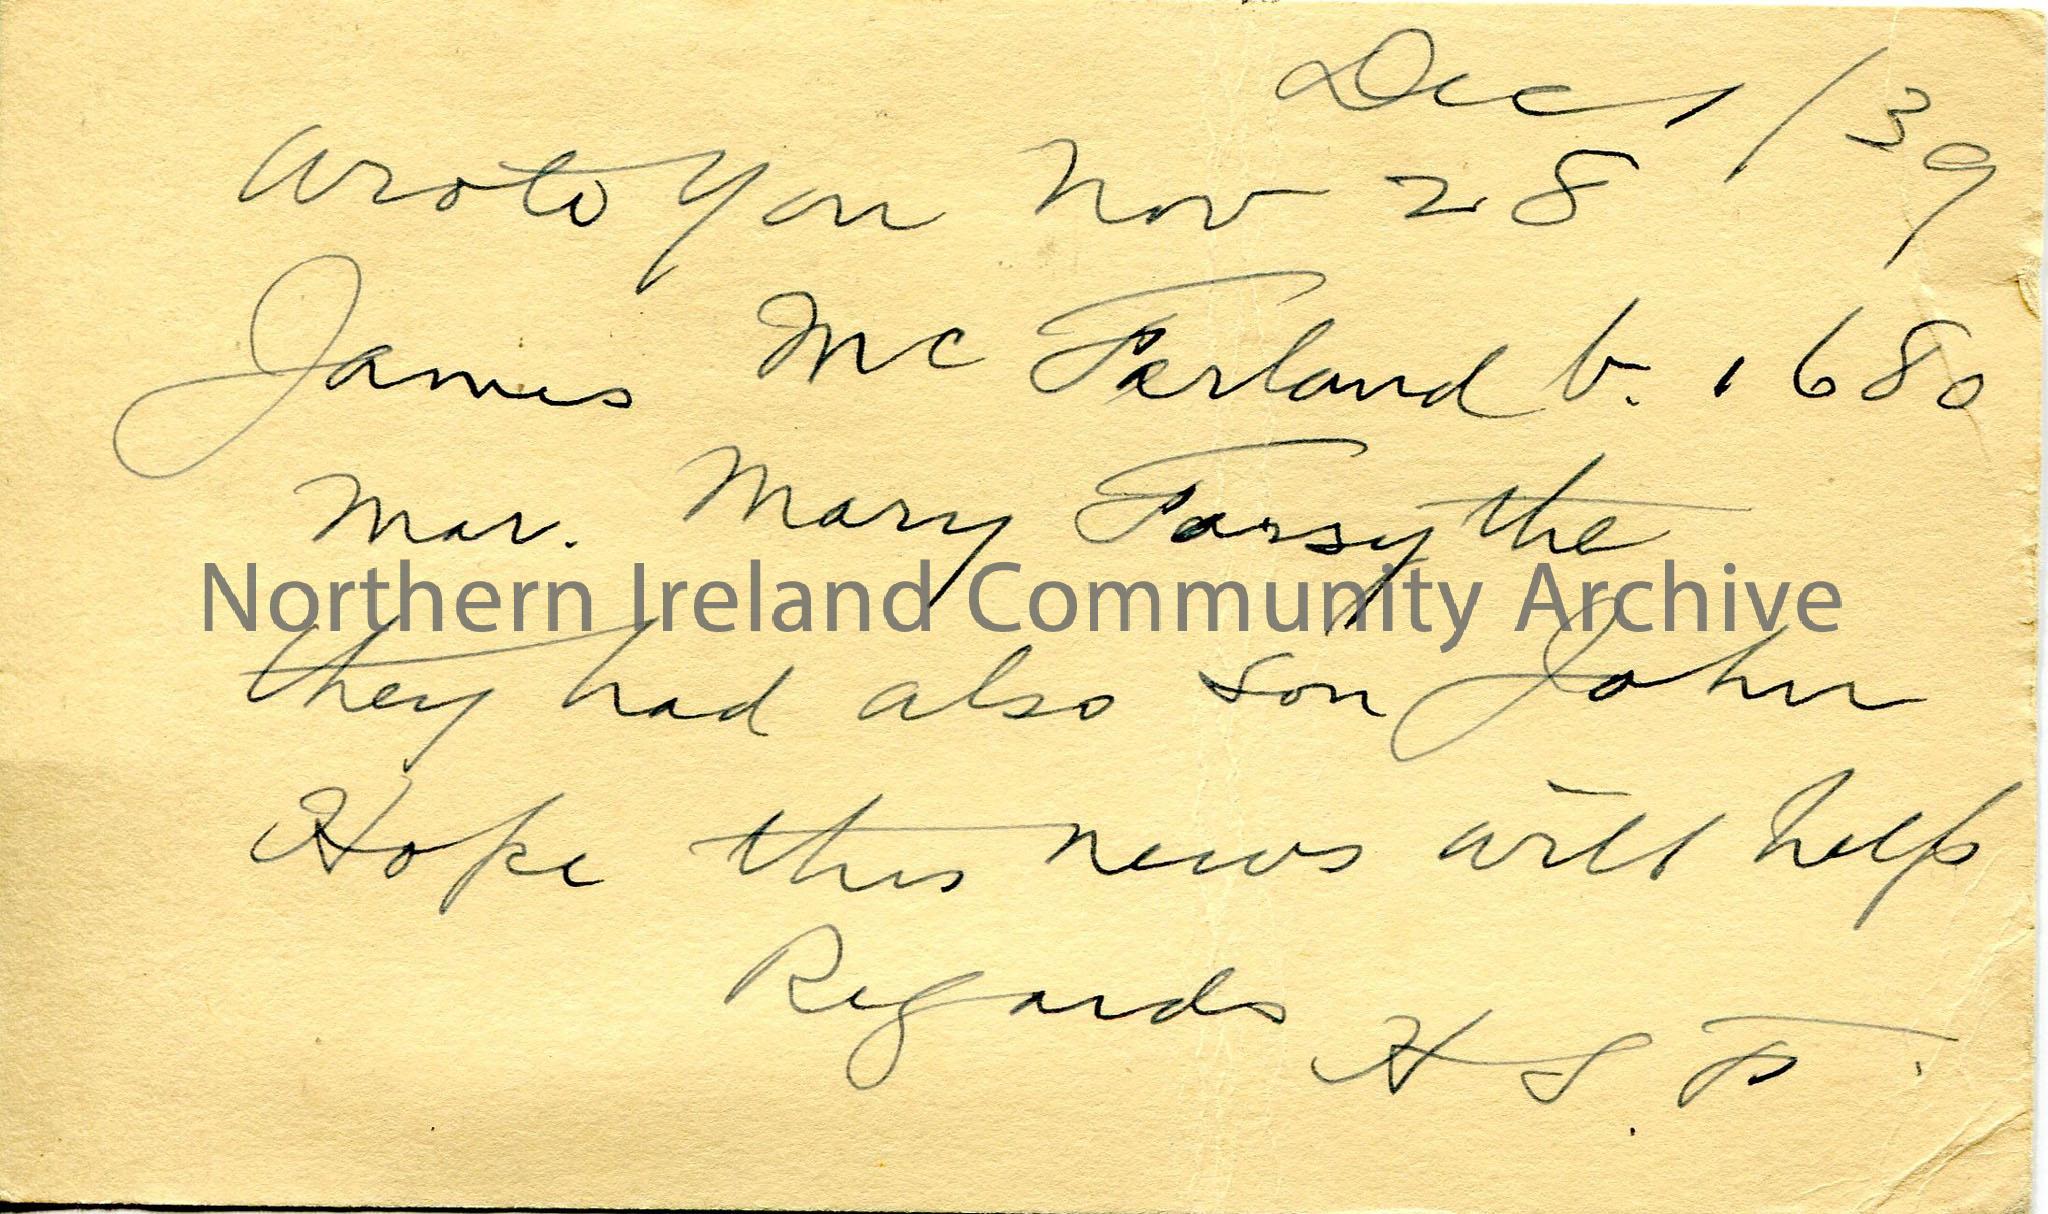 Dec 1/39
Wrote You Nov 28
James Mc Farland b. 1680
Mar. Mary Forsythe
Northern Ireland Community Archive
they had also son John
Hope this news will help
Regards
H S. F.